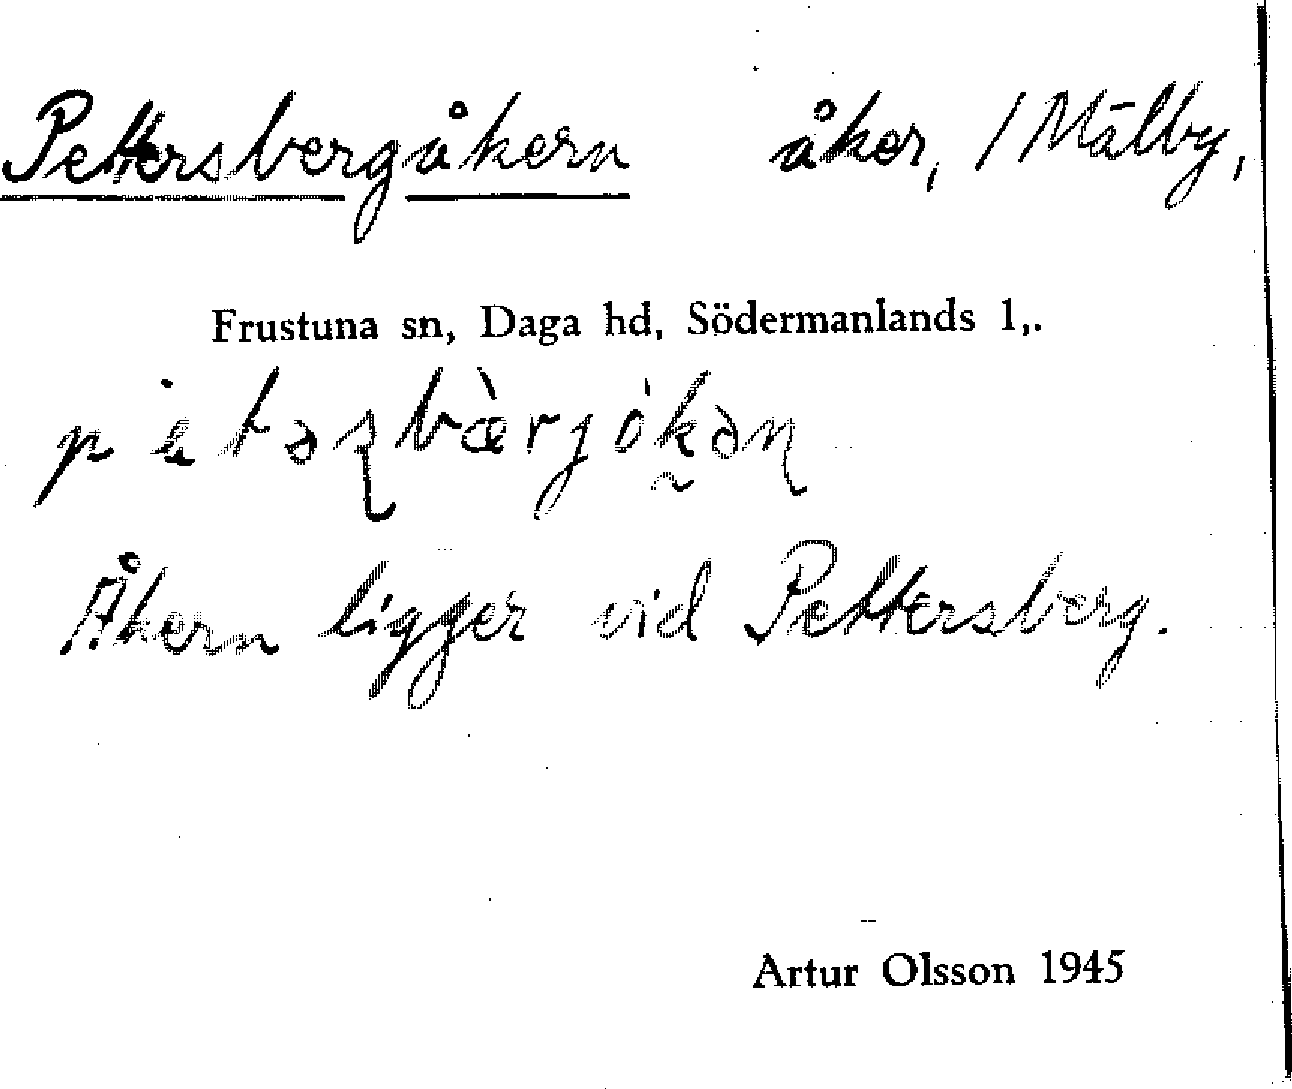 Pettersbergåkern åker, / Mälby,
Frustuna sn, Daga hd, Södermanlands l,.
Åkern ligger vid Pettersberg.
Artur Olsson 1945